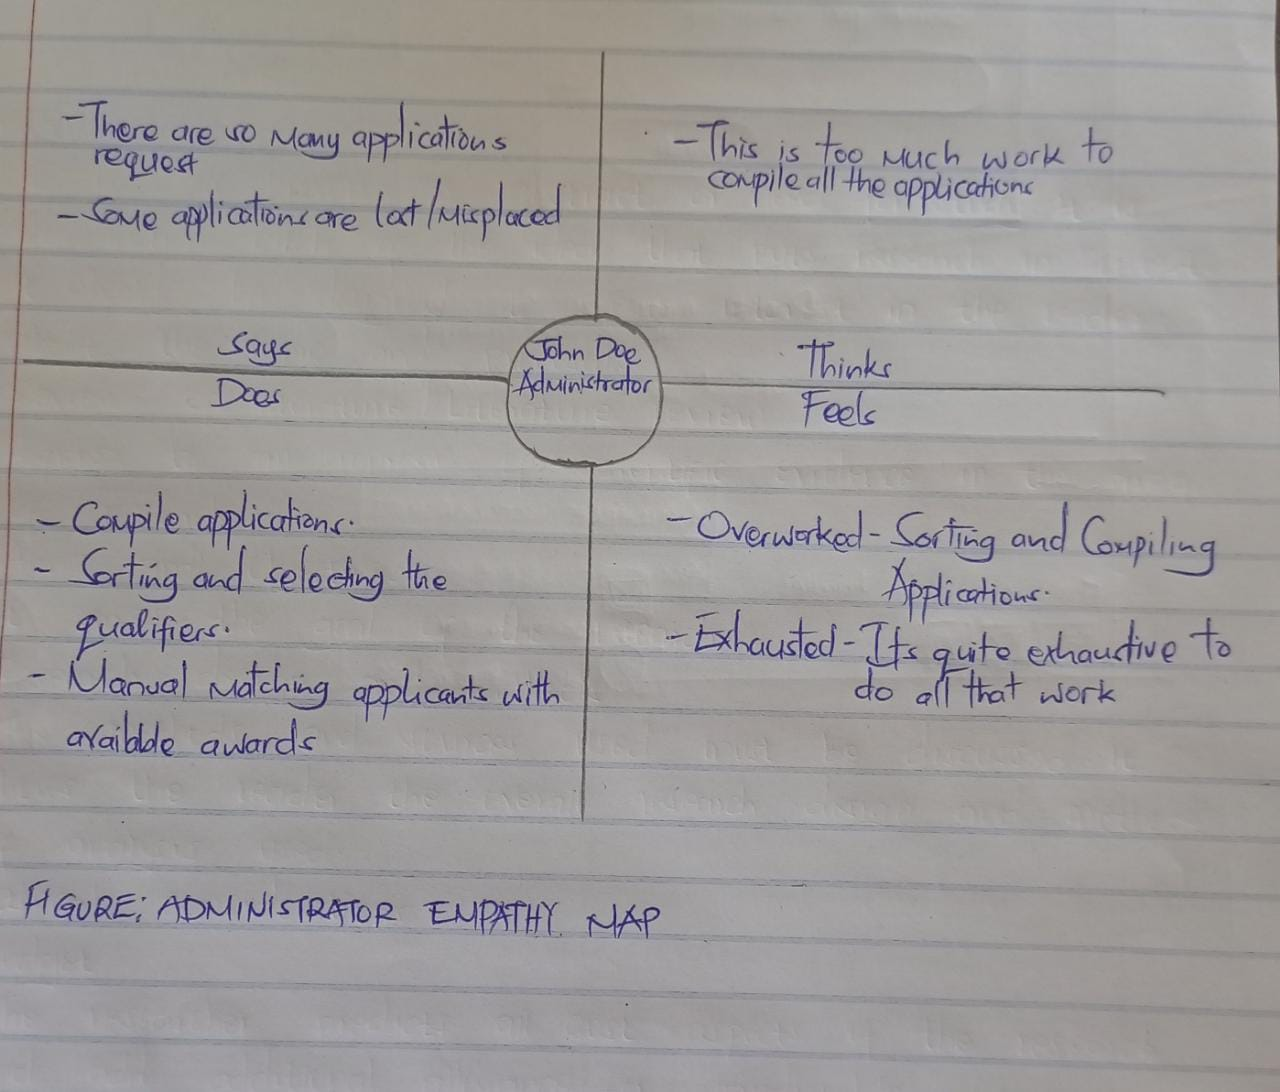 - There are so many applications
request
- Some applications are lost/misplaced
- This is too much work to
compile all the applications
Says
Does
John Doe
Administrator
Thinks
Feels
- Compile applications.
- Sorting and selecting the
qualifiers.
- Manual matching applicants with
available awards
- Overworked - Sorting and Compiling
Applications.
- Exhausted - Its quite exhaustive to
do all that work
FIGURE: ADMINISTRATOR EMPATHY MAP